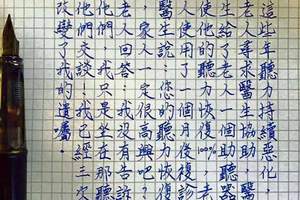 這些年聽力持續惡化，
老人尋求醫生協助，醫
生給了老人一個助聽器
使他的聽力恢復100%。老
人使用了一個月後復診
醫生說：您的聽力恢復
家人一定很高興吧？
老人回答：我沒有告訴
他們，只是坐在那聽
他們交談！我已經三次
改變了我的遺囑